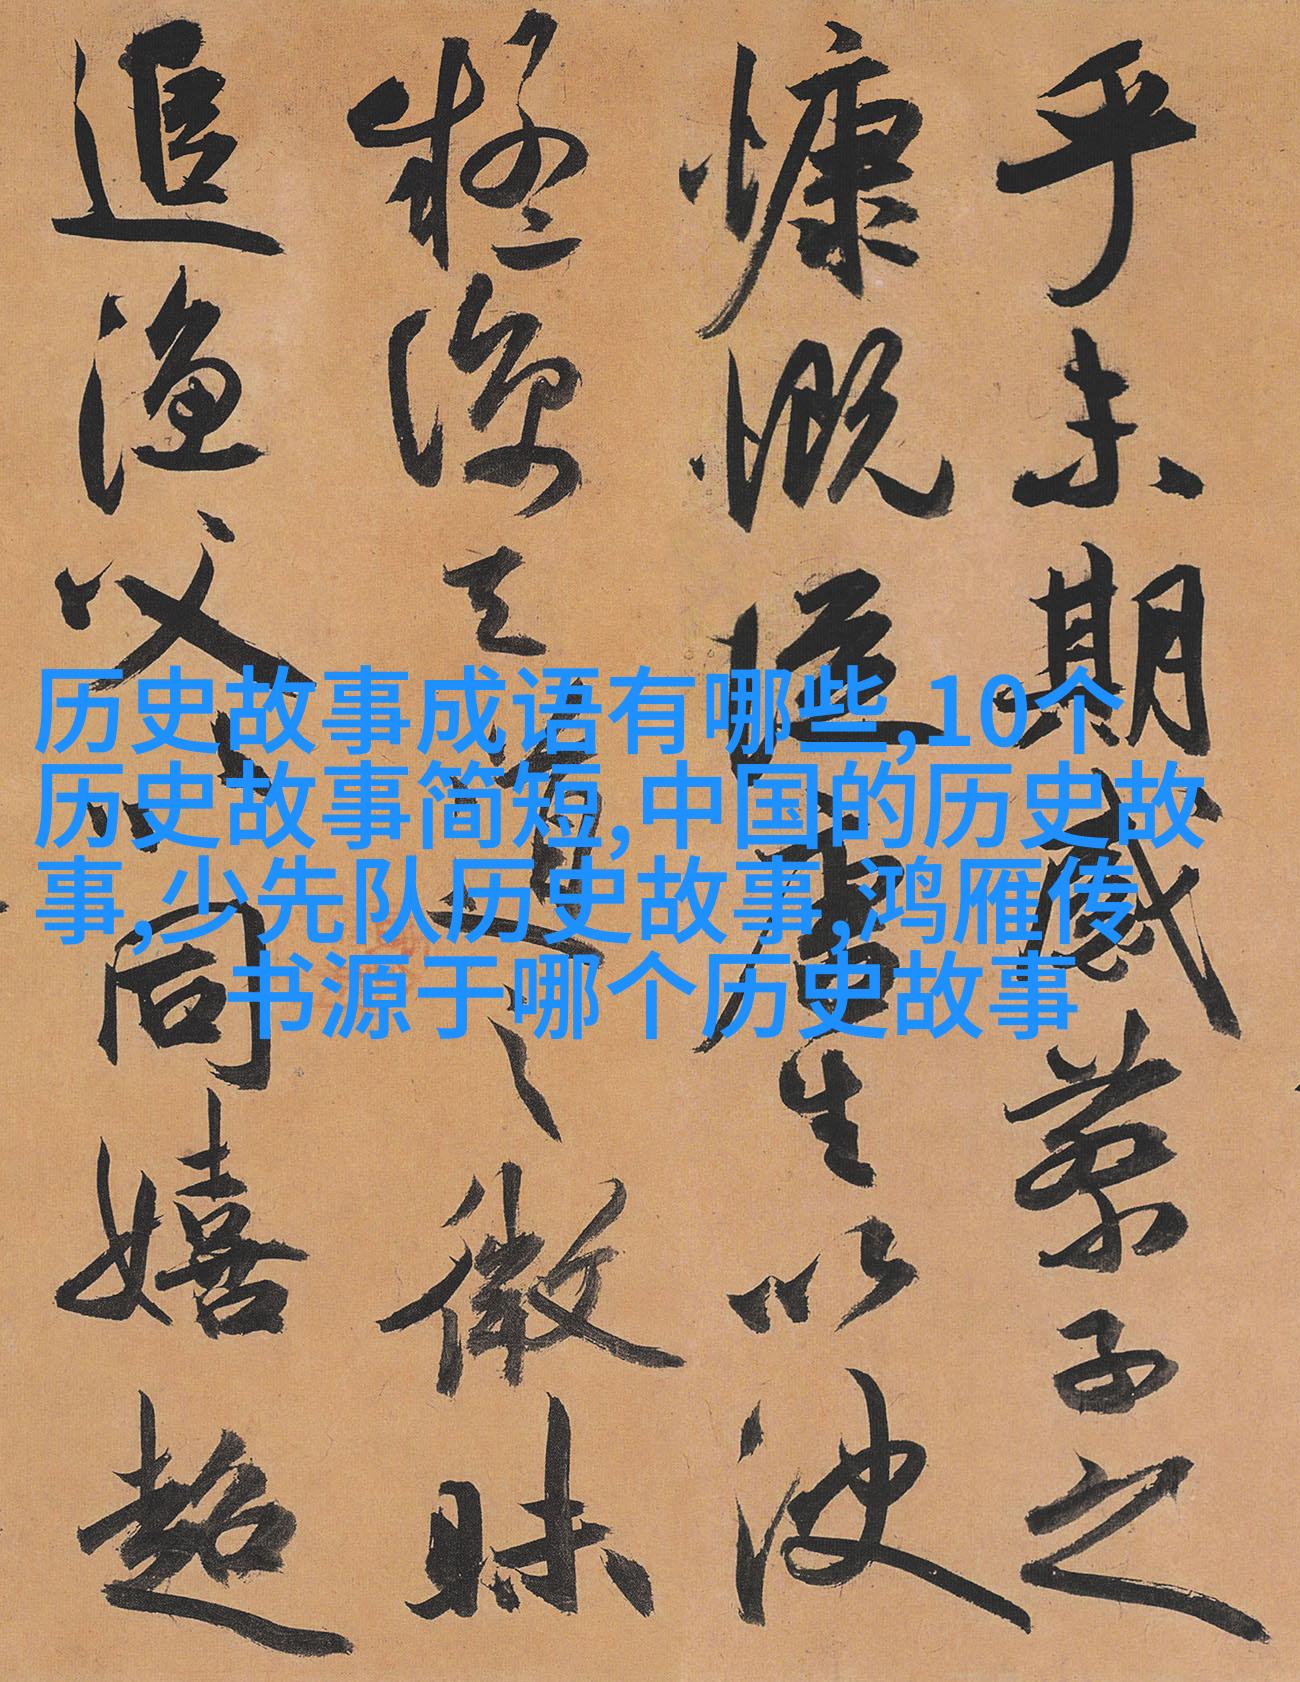 乎未期感蔡子之
慷慨從唐生以決
疑諒天道之微昧
追漁父以同嬉超
历史故事成语有哪些,10个
历史故事简短,中国的历史故
事,少先队历史故事,鸿雁传
书源于哪个历史故事